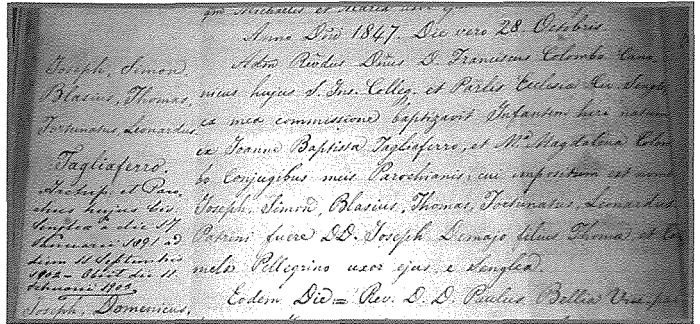 Michaelis et Maria
Anno Dñi 1847. Die vero 28. Octobris
Joseph, Simon,
Blasius, Thomas,
Fortunatus Leonardus
Tagliaferro.
Archip. et Paro
chus hujus
Senglea a die 17
Januarii 1891 ad
diem 11 Septembris
1902 – Obiit die 11
Januarii 1903
Joseph, Domenicus,
Adm Rñdus Dñus D. Franciscus Colombo Cano
nicus hujus S. Ins. Colleg. et Parlis Ecclesia Civ. Senglea,
ex mea commissione baptizavit Infantem heri natum
ex Joanne Baptista Tagliaferro, et Mª Magdalena Colom
bo Conjugibus meis Parochianis: cui impositum est nomen
Joseph, Simon, Blasius, Thomas, Fortunatus, Leonardus
Patrini fuere DD. Joseph Demajo filius Thoma et Car
melor Pellegrino uxor ejus, e Senglea.
Eodem Die = Rev. D. D. Paulus Bellia